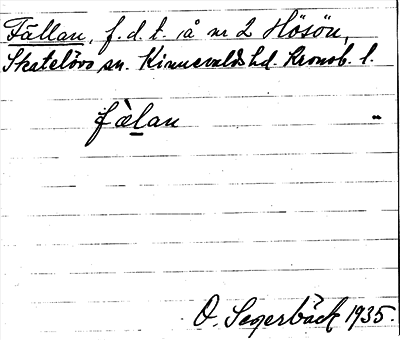 Fällan, f.d.t. å nr 2 Hösön,
Skatelövs sn. Kinnevalds hd. Kronob. l.
fälan -
O. Segerbäck 1935.